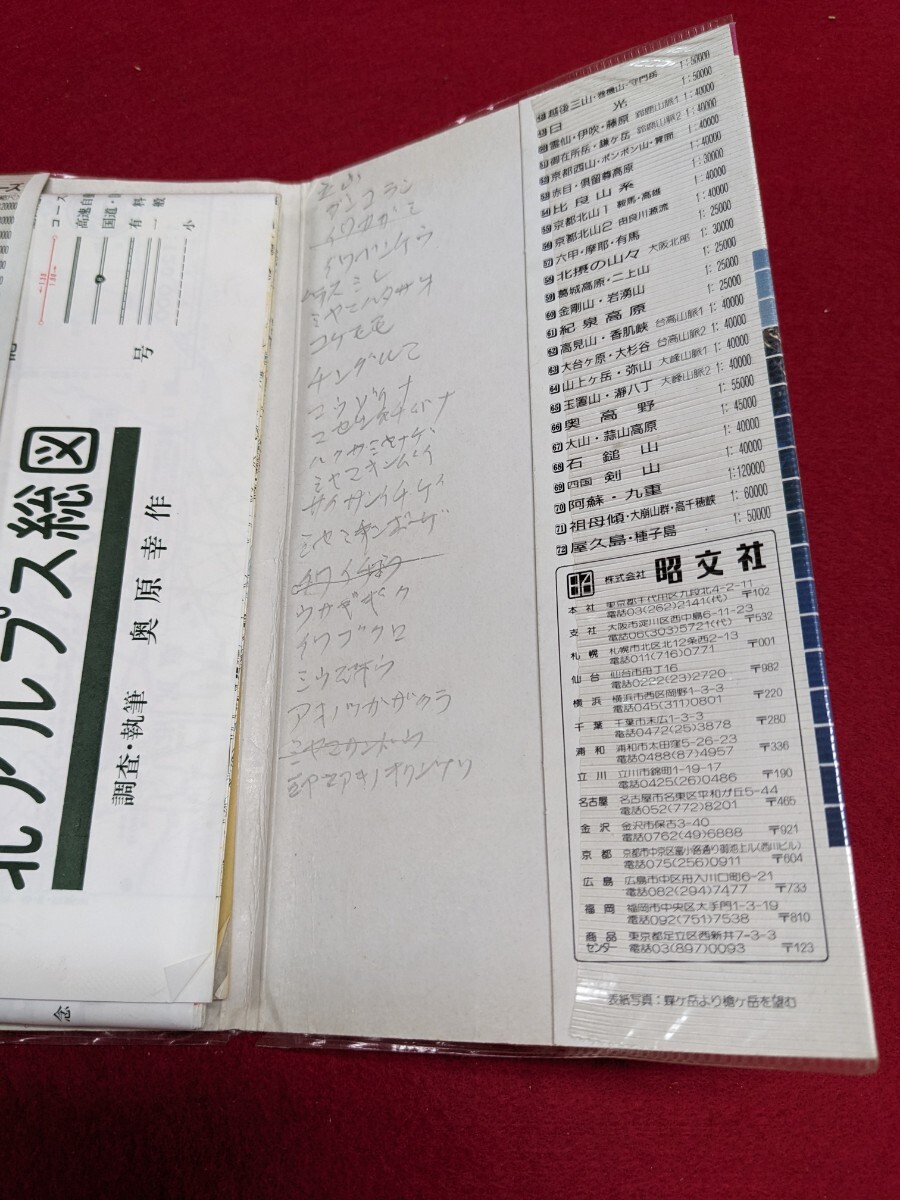 コース
高速自動
国道・
有料
一般
小
号
北アルプス総図
調査・執筆 奥原幸作
念
立山
ガンコウラン
イワカガミ
コケモモ
チングルマ
ミヤマキンバイ
ミヤマキンポーゲ
ウサギギク
イワブクロ
越後三山・巻機山・守門岳 1:50000
49 日光 1:50000
50 霊仙・伊吹・藤原 鈴鹿山脈1 1:40000
51 御在所岳・鎌ヶ岳 鈴鹿山脈2 1:40000
52 京都西山・ポンポン山・箕面 1:40000
53 赤目・倶留尊高原 1:30000
54 比良山系 1:40000
55 京都北山1 鞍馬・高雄 1:40000
56 京都北山2 由良川源流 1:40000
57 六甲・摩耶・有馬 1:25000
58 北摂の山々 大阪北部 1:30000
59 葛城高原・二上山 1:25000
60 金剛山・岩湧山 1:25000
61 紀泉高原 1:25000
62 高見山・香肌峡 台高山脈1 1:40000
63 大台ヶ原・大杉谷 台高山脈2 1:40000
64 山上ヶ岳・弥山 大峰山脈1 1:40000
65 玉置山・瀞八丁 大峰山脈2 1:40000
66 奥高野 1:55000
67 大山・蒜山高原 1:45000
68 石鎚山 1:40000
69 四国剣山 1:40000
70 阿蘇・九重 1:120000
71 祖母傾・大崩山群・高千穂峡 1:60000
72 屋久島・種子島 1:50000
株式会社 昭文社
本社 東京都千代田区九段北4-2-11
電話03(262)2141(代) 〒102
支社 大阪市淀川区西中島6-11-23
電話06(303)5721(代) 〒532
札幌 札幌市北区北12条西2-13
電話011(716)0771 〒001
仙台 仙台市舟丁16
電話0222(23)2720 〒982
横浜 横浜市西区岡野1-3-3
電話045(311)0801 〒220
千葉 千葉市末広1-3-3
電話0472(25)3878 〒280
浦和 浦和市太田窪5-26-23
電話0488(87)4957 〒336
立川 立川市錦町1-19-17
電話0425(26)0486 〒190
名古屋 名古屋市名東区平和が丘5-44
電話052(772)8201 〒465
金沢 金沢市保古3-40
電話0762(49)6888 〒921
京都 京都市中京区富小路通り御池上ル(西川ビル)
電話075(256)0911 〒604
広島 広島市中区舟入川口町6-21
電話082(294)7477 〒733
福岡 福岡市中央区大手門1-3-19
電話092(751)7538 〒810
商品センター 東京都足立区西新井7-3-3
電話03(897)0093 〒123
表紙写真：蝶ヶ岳より槍ヶ岳を望む